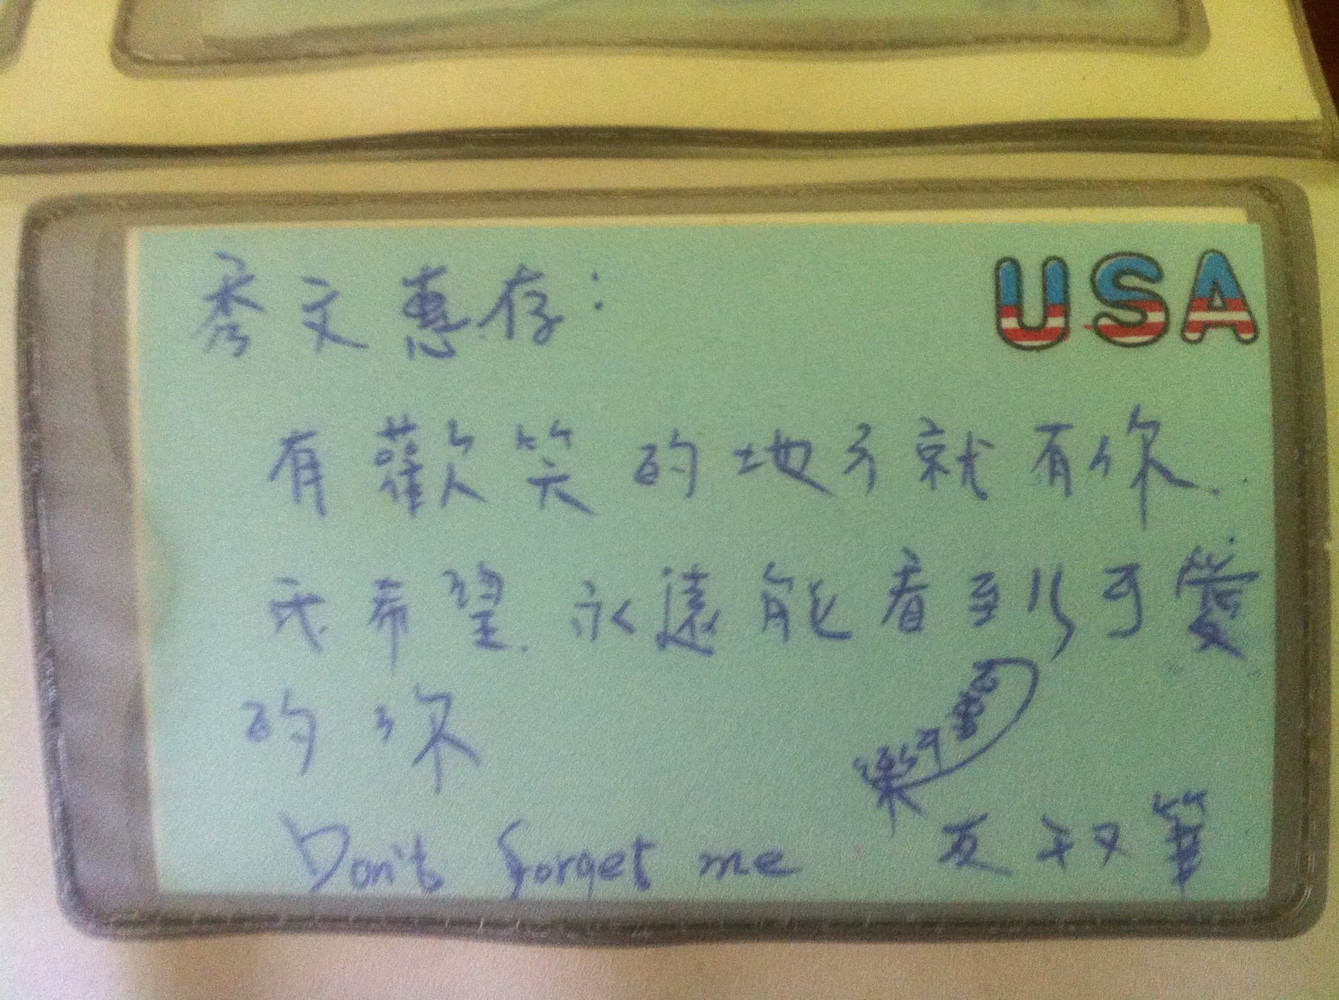 秀文惠存：
USA
有歡笑的地方就有你．
我希望．永遠能看到可愛
的你
Don't forget me
友 筆